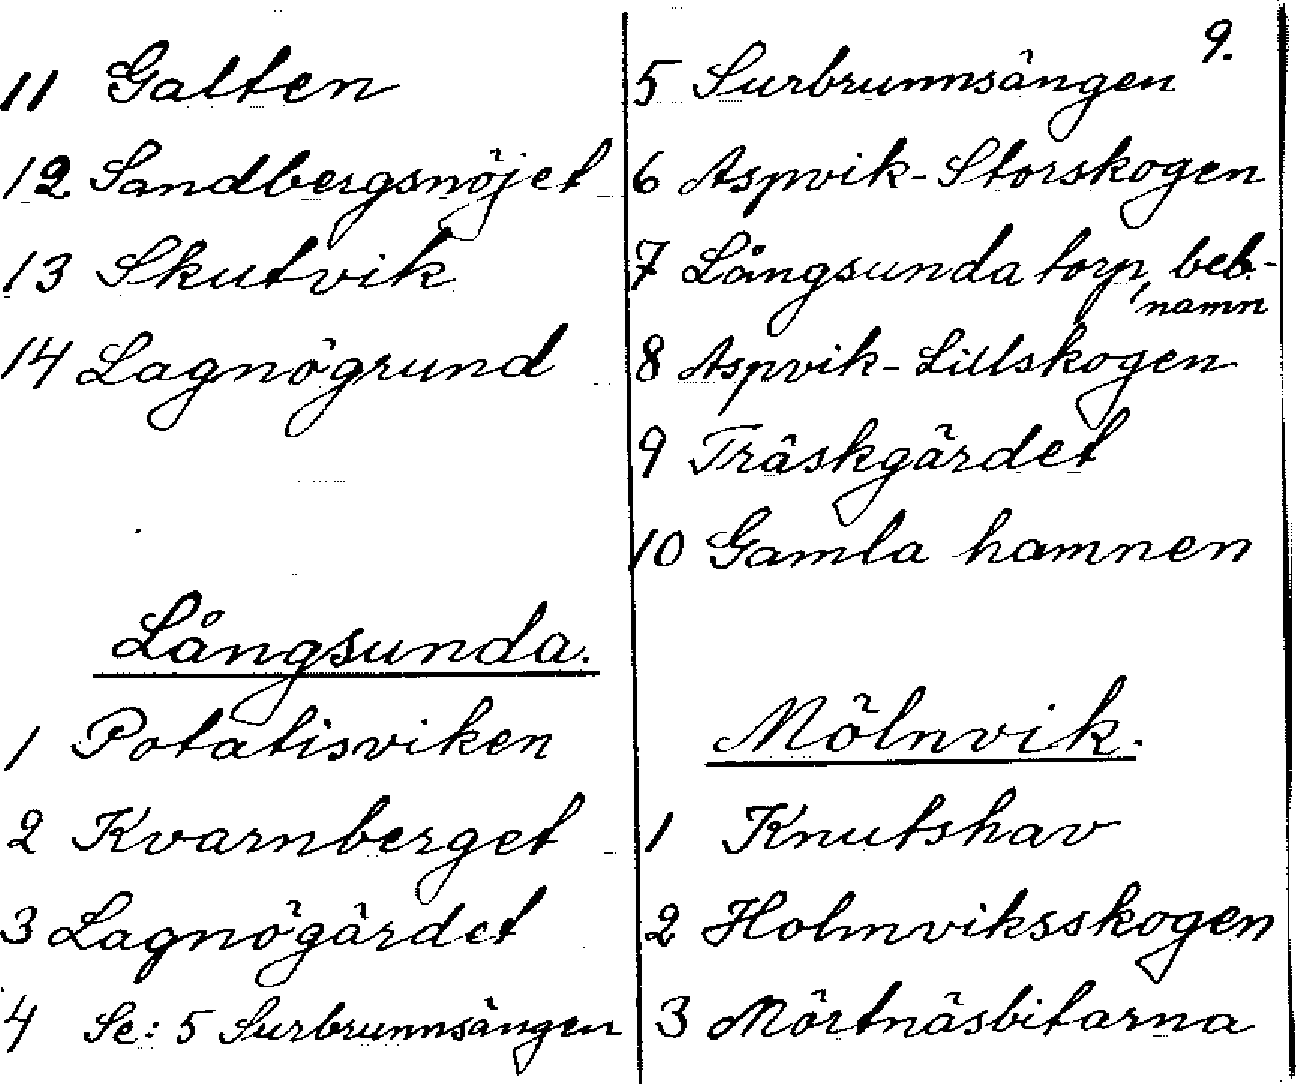 9.
11 Galten
12 Sandbergsnöjet
13 Skutvik
14 Lagnögrund
Långsunda.
1 Potatisviken
2 Kvarnberget
3 Lagnögärdet
4 Se: 5 Surbrunnsängen
5 Surbrunnsängen
6 Aspvik-Storskogen
7 Långsunda torp, beb.-
namn
8 Aspvik-Lillskogen
9 Träskgärdet
10 Gamla hamnen
Mölnvik.
1 Knutshav
2 Holmviksskogen
3 Mörtnäsbitarna